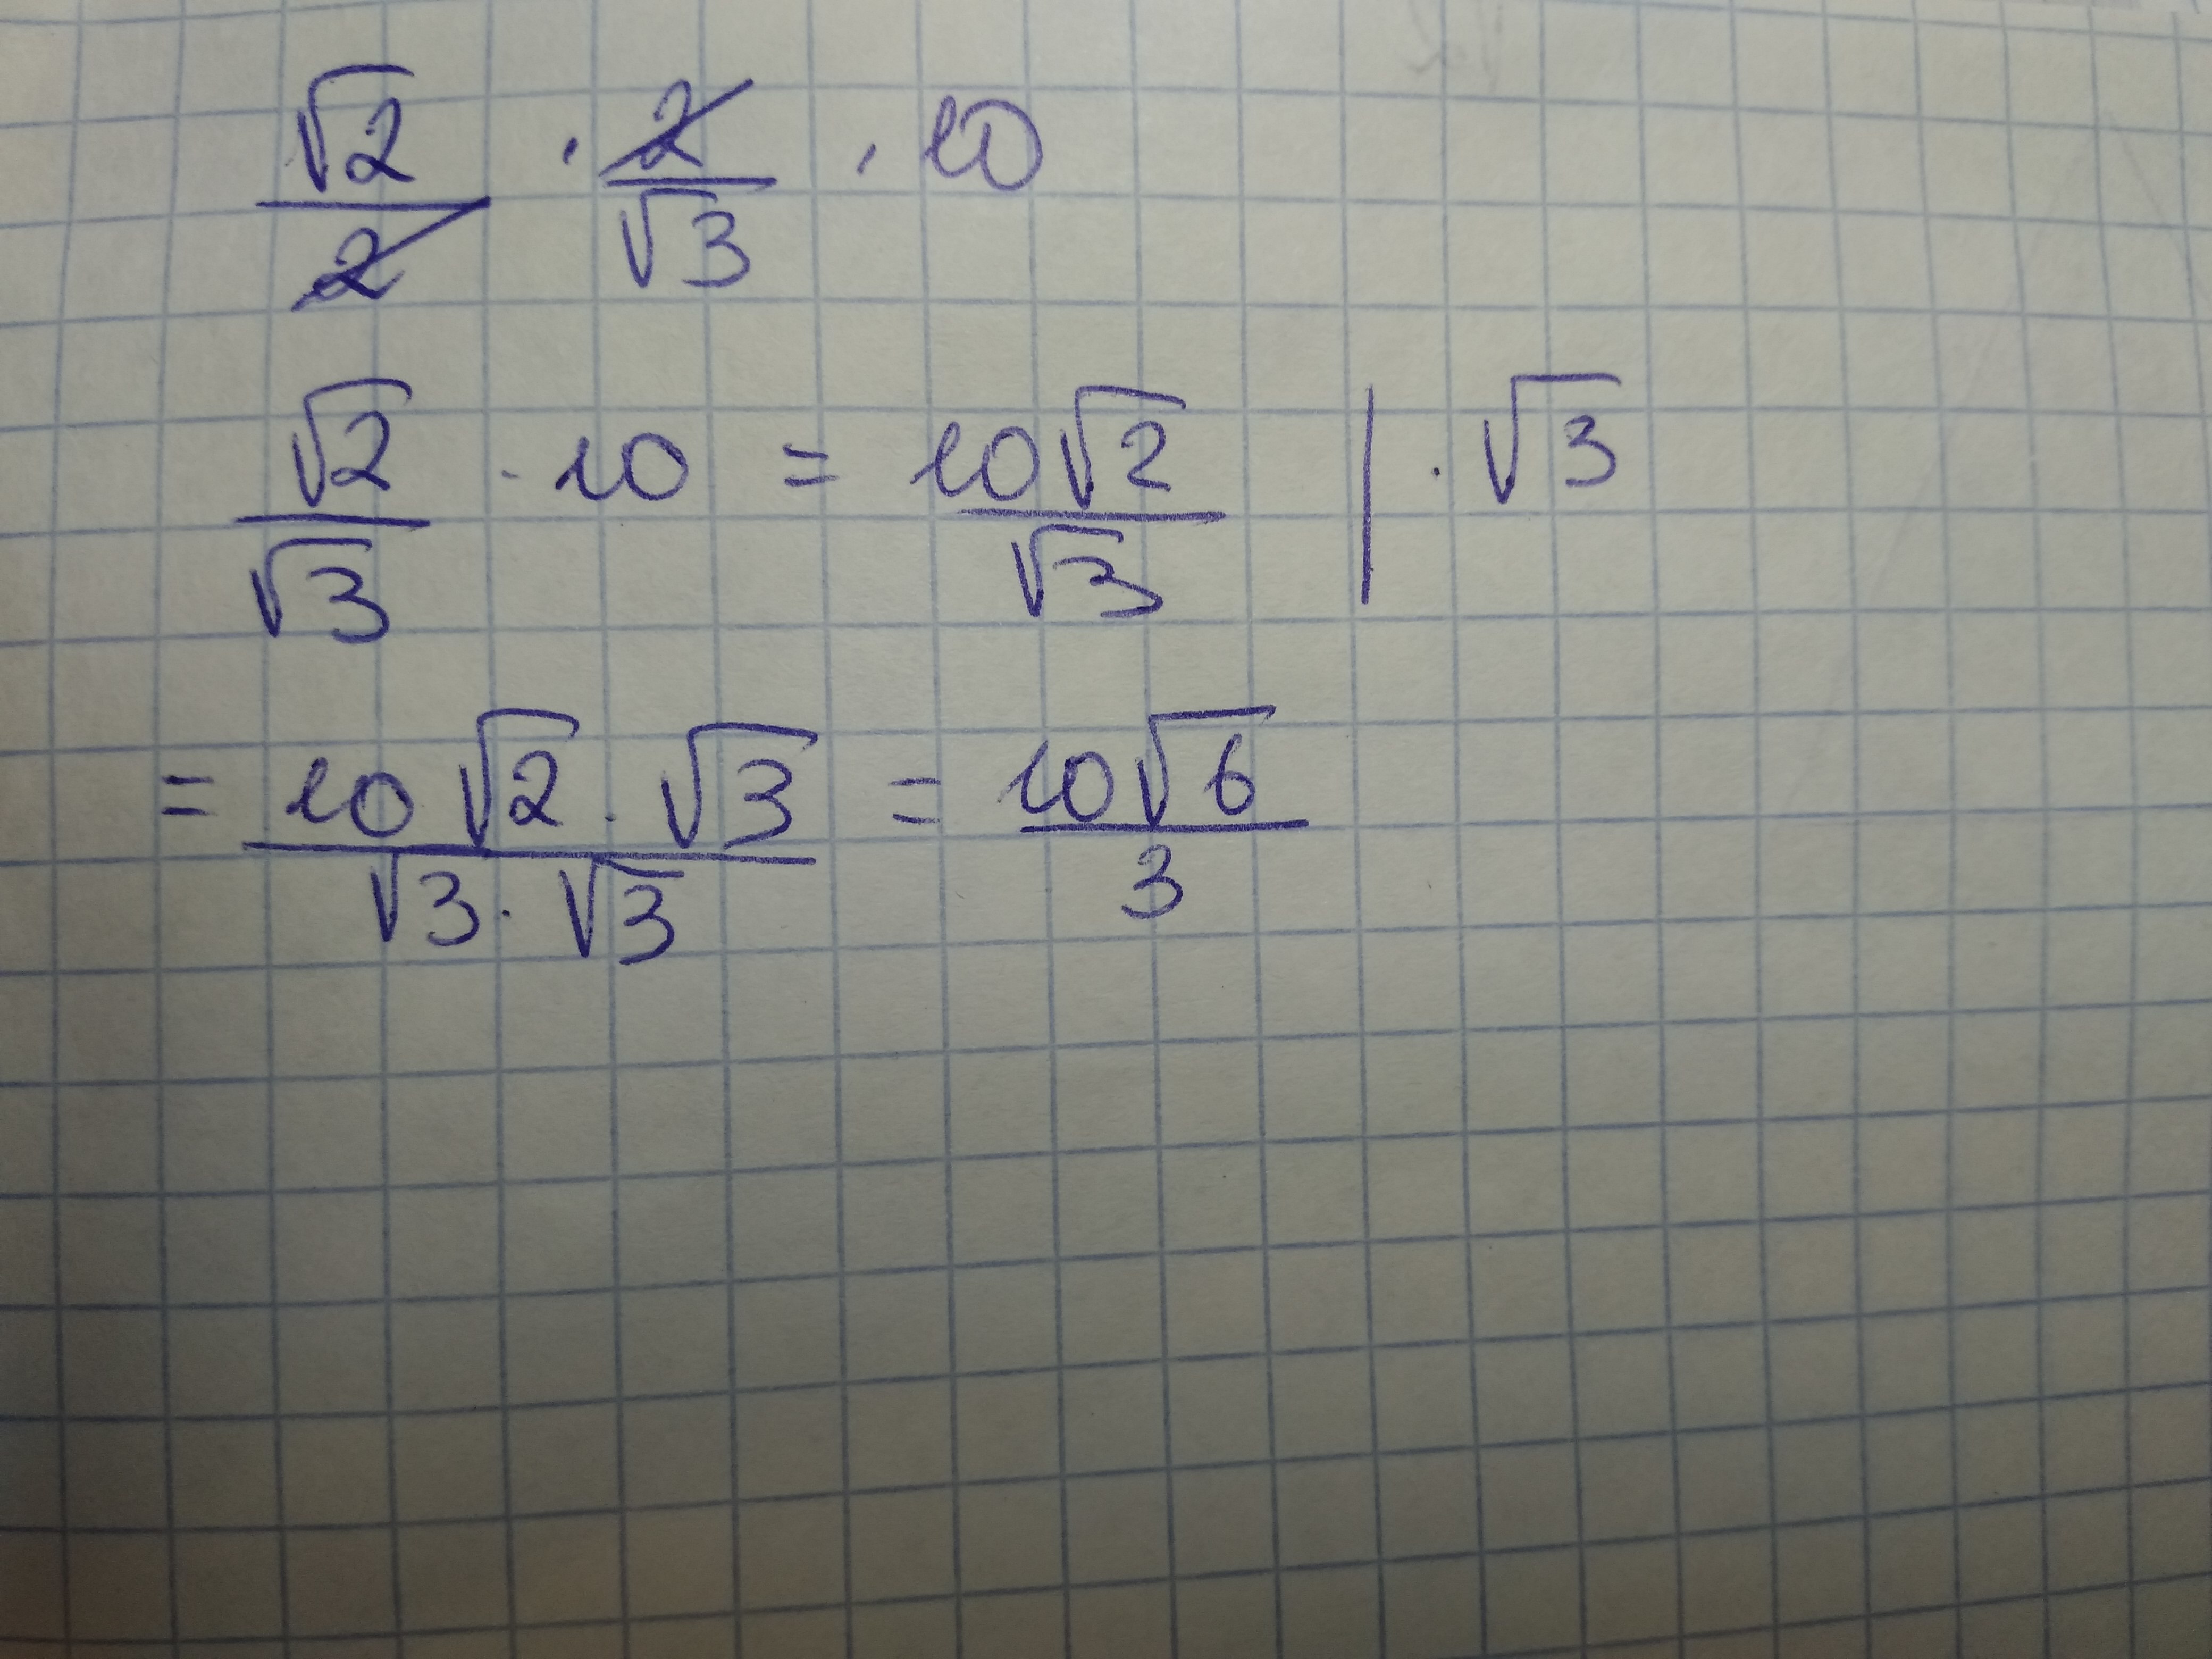 √2/2 · 2/√3 · 10
√2/√3 · 10 = 10√2/√3 | · √3
= 10√2 · √3/√3 · √3 = 10√6/3